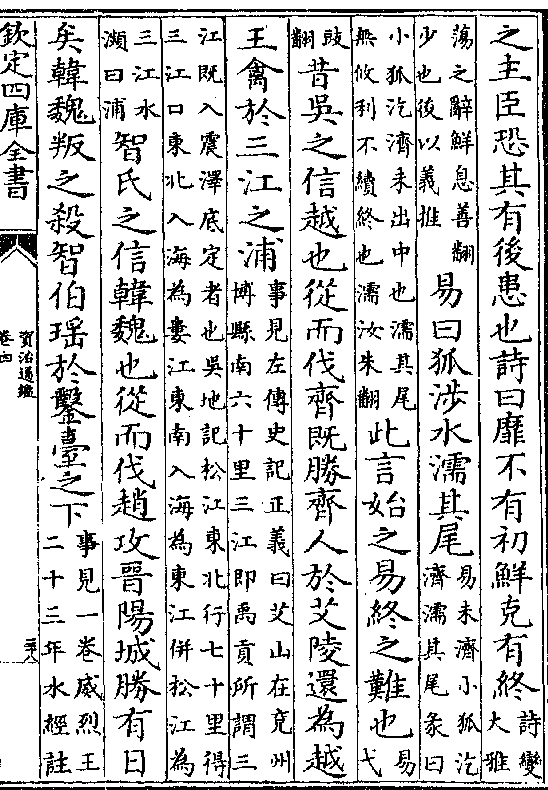 之主臣恐其有後患也詩曰靡不有初鮮克有終詩變大雅
蕩之辭鮮息善翻少也後以義推易曰狐涉水濡其尾易未濟小狐汔濟濡其尾彖曰
小狐汔濟未出中也濡其尾無攸利不續終也濡汝朱翻此言始之易終之難也易弋
豉翻昔吳之信越也從而伐齊既勝齊人於艾陵還為越
王禽於三江之浦事見左傳史記正義曰艾山在兖州博縣南六十里三江即禹貢所謂三
江既入震澤底定者也吳地記松江東北行七十里得三江口東北入海為婁江東南入海為東江併松江為
三江水瀕曰浦智氏之信韓魏也從而伐趙攻晉陽城勝有日
矣韓魏叛之殺智伯瑶於鑿臺之下事見一卷威烈王二十三年水經註
欽定四庫全書
資治通鑑
卷四